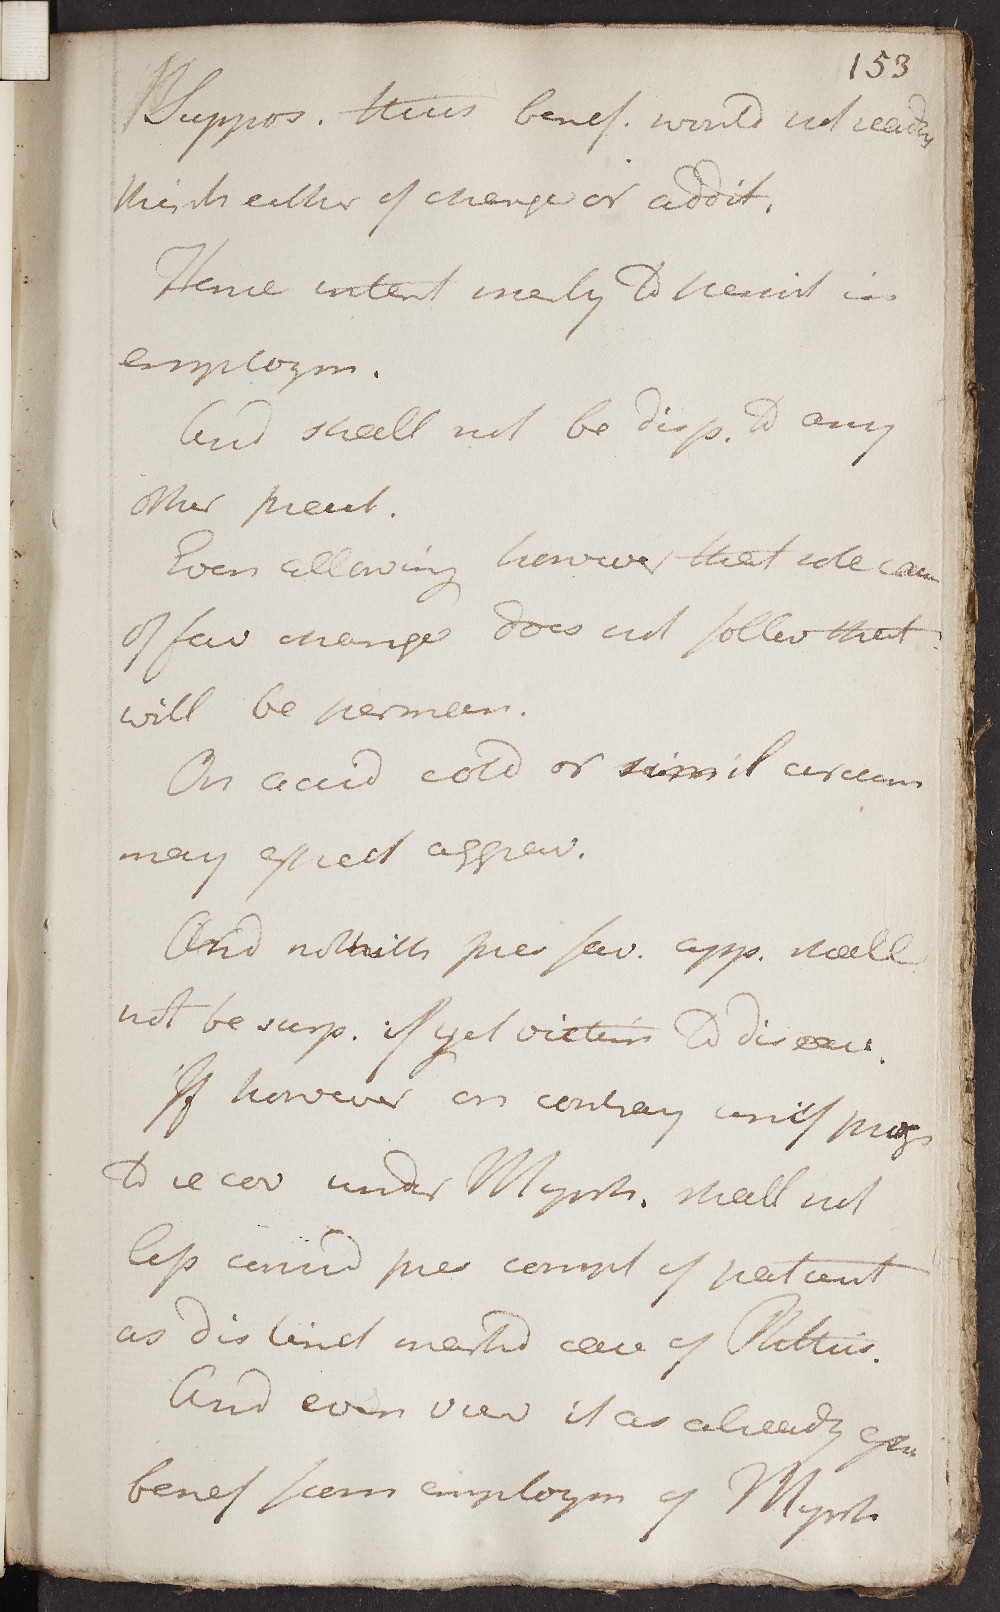 153
Suppos. this benef. would not readily
think either of change or addit.
Hence intent merely to persist in
employm.
And shall not be disp. to any
other pract.
Even allowing however that
of fav change does not follow that
will be perman.
On accid cold or simil circum
may expect aggrav.
And notwith pres fav. app. shall
not be surp. if yet victim to diseas.
If however on contrary unif progr
to recov under Myrrh. shall not
less consid pres compl of patient
as distinct marked case of Phthis.
And even view it as already
benef from employm of Myrrh